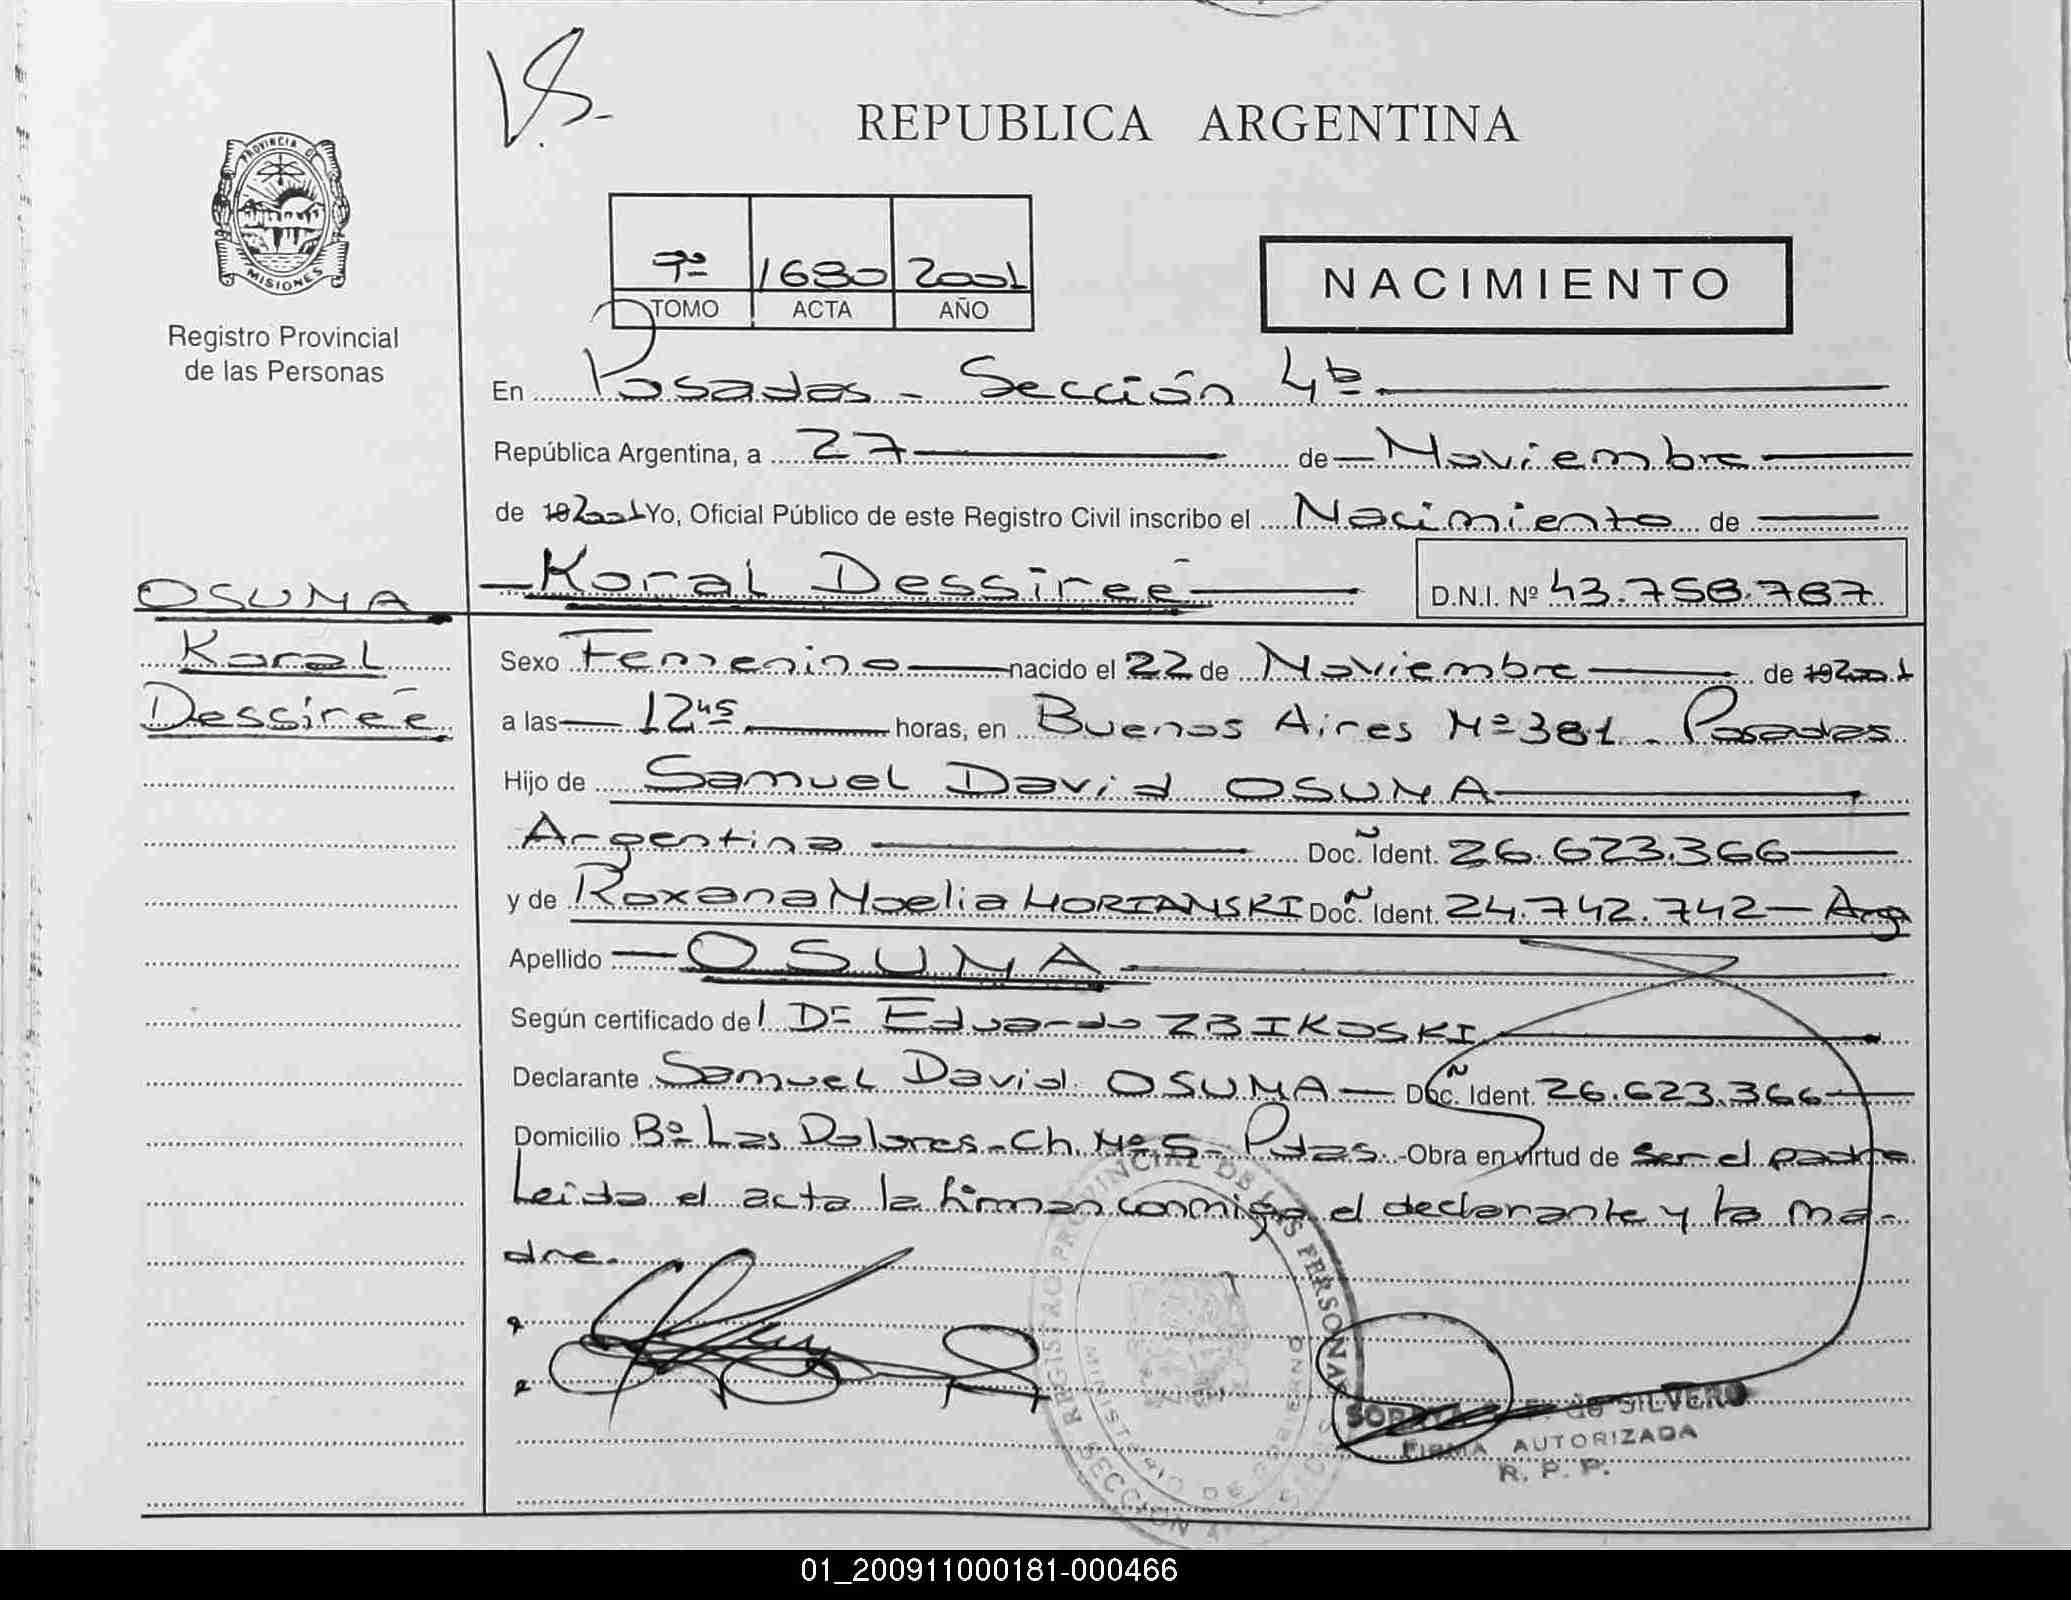 V.S.-
REPUBLICA ARGENTINA
PROVINCIA DE
MISIONES
Registro Provincial
de las Personas
7º 1680 2001
TOMO ACTA AÑO
NACIMIENTO
En Posadas - Sección 4ta
República Argentina, a 27 de Noviembre
de 19 2001 Yo, Oficial Público de este Registro Civil inscribo el Nacimiento de
Koral Dessireé
D.N.I. Nº 43.758.787
OSUNA
Koral
Dessireé
Sexo Femenino nacido el 22 de Noviembre de 19 2001
a las 12 45 horas, en Buenos Aires Nº 381 - Posadas
Hijo de Samuel David OSUNA
Argentina Doc. Ident. 26.623.366
y de Roxana Noelia HORIANSKI Doc. Ident. 24.742.742 - Arg
Apellido OSUNA
Según certificado del Dr Eduardo ZBIKOSKI
Declarante Samuel David OSUNA Doc. Ident. 26.623.366
Domicilio Bº Las Dolores - Ch. Nº 5 - Pdas. - Obra en virtud de ser el padre
Leida el acta la firman conmigo el declarante y la ma-
dre.-
REGISTRO PROVINCIAL DE LAS PERSONAS
MINISTERIO DE GOBIERNO
SECCION 4
de SILVERO
FIRMA AUTORIZADA
R. P. P.
01_200911000181-000466